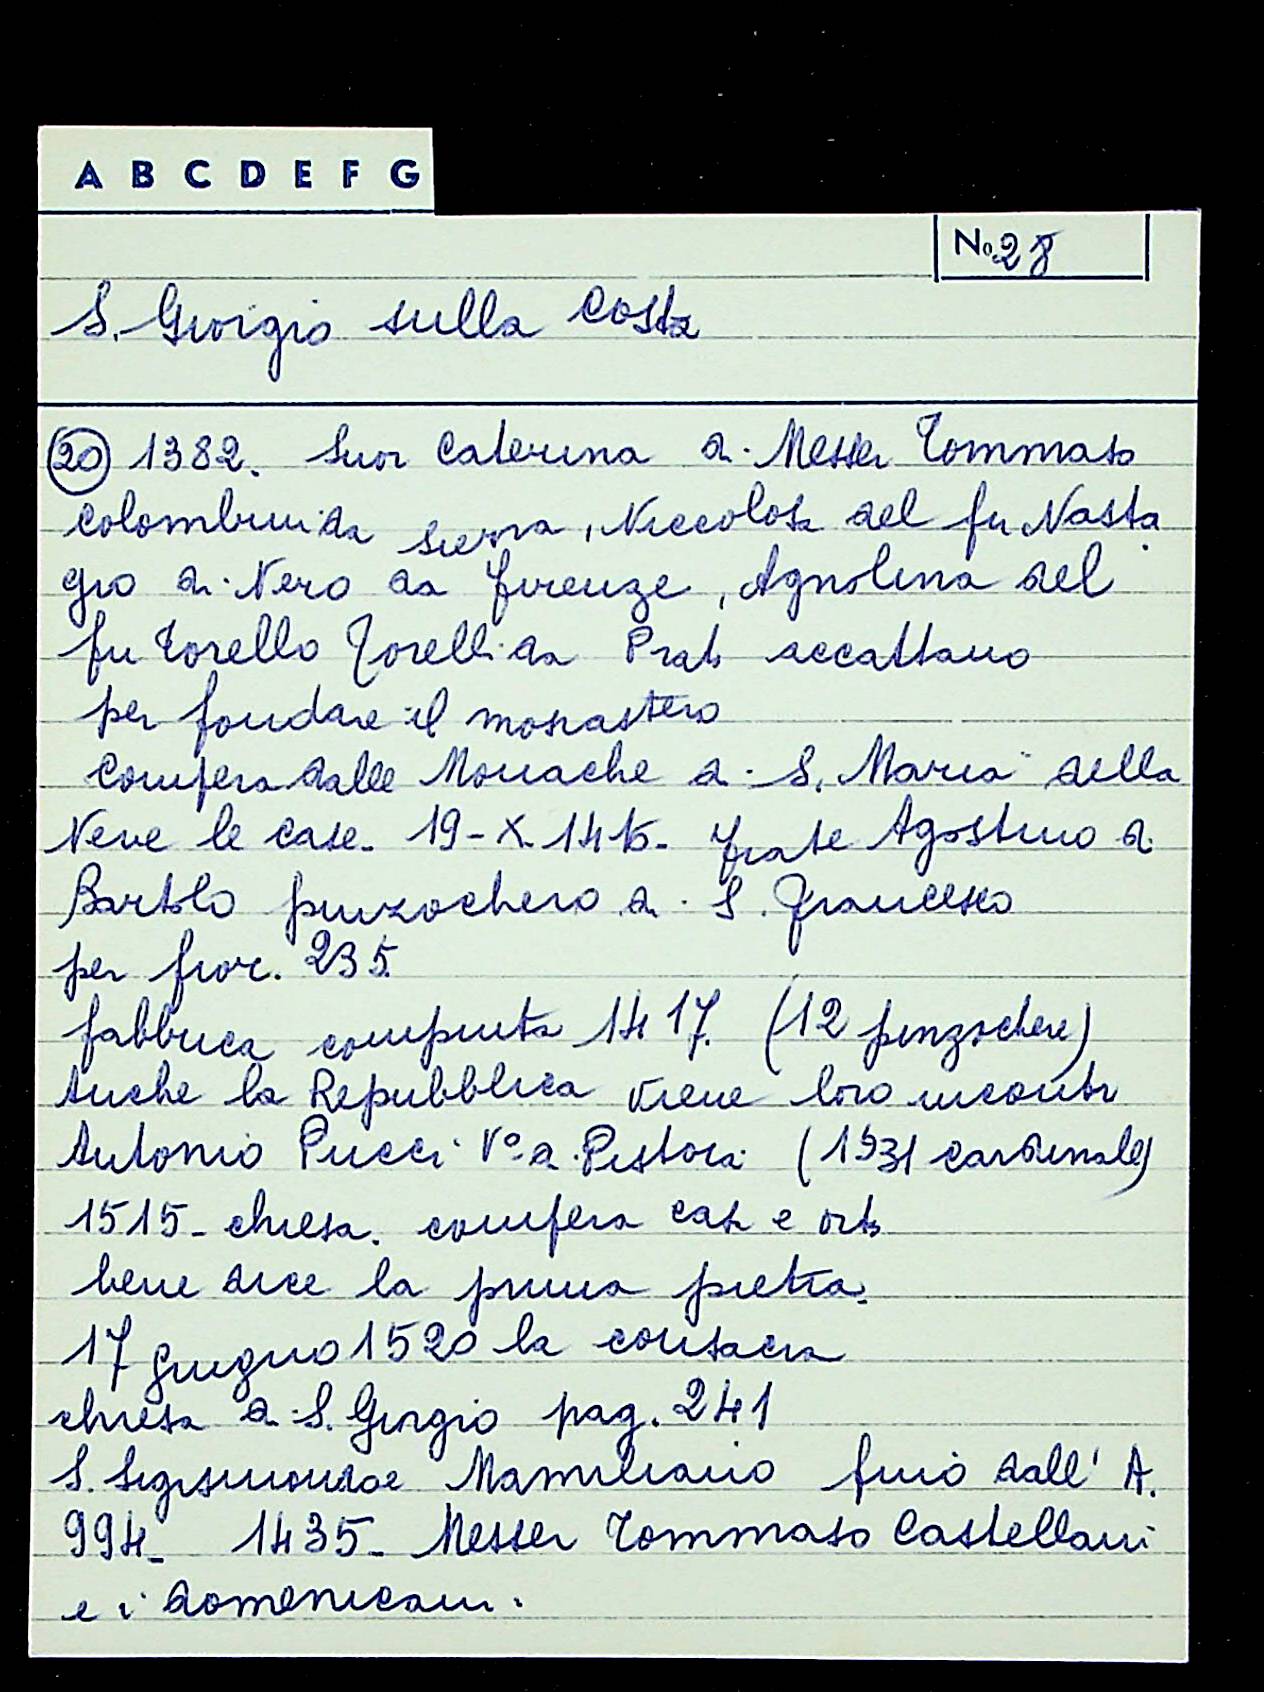 A B C D E F G
No. 28
S. Giorgio sulla Costa
(20) 1382. Suor Caterina di Messer Tommaso
Colombini da Siena, Niccolosa del fu Nasta
gio di Nero da Firenze, Agnolina del
fu Torello Torelli da Prato accattano
per fondare il monastero
Compera dalle Monache di S. Maria della
Neve le case. 19-X-1416- frate Agostino di
Bartolo pinzochero di S. Francesco
per fior. 235
fabbrica compiuta 1417. (12 pinzochere)
Anche la Repubblica viene loro incontro
Antonio Pucci V° di Pistoia (1531 cardinale)
1515- chiesa. compera casa e orto
benedice la prima pietra.
17 giugno 1520 la consacra
chiesa di S. Giorgio pag. 241
S. Sigismondo e Mamiliano fino dall' A.
994- 1435- Messer Tommaso Castellani
e i domenicani.